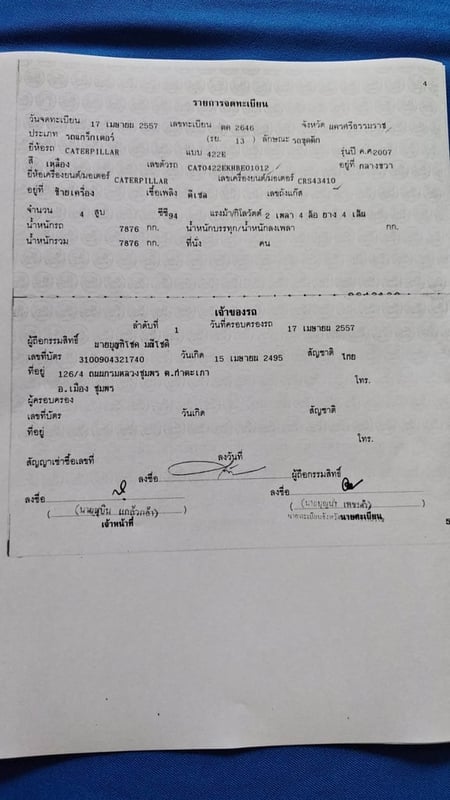 4
รายการจดทะเบียน
วันจดทะเบียน 17 เมษายน 2557 เลขทะเบียน ตค 2646 จังหวัด นครศรีธรรมราช
ประเภท รถแทร็กเตอร์ (รย. 13 ) ลักษณะ รถขุดตัก
ยี่ห้อรถ CATERPILLAR แบบ 422E รุ่นปี ค.ศ2007
สี เหลือง เลขตัวรถ CAT0422EKHBE01012 อยู่ที่ กลางขวา
ยี่ห้อเครื่องยนต์/มอเตอร์ CATERPILLAR เลขเครื่องยนต์/มอเตอร์ CRS43410
อยู่ที่ ซ้ายเครื่อง เชื้อเพลิง ดีเซล เลขถังแก๊ส
จำนวน 4 สูบ ซีซี94 แรงม้า/กิโลวัตต์ 2 เพลา 4 ล้อ ยาง 4 เส้น
น้ำหนักรถ 7876 กก. น้ำหนักบรรทุก/น้ำหนักลงเพลา กก.
น้ำหนักรวม 7876 กก. ที่นั่ง คน
เจ้าของรถ
ลำดับที่ 1 วันที่ครอบครองรถ 17 เมษายน 2557
ผู้ถือกรรมสิทธิ์
เลขที่บัตร 3100904321740 วันเกิด 15 เมษายน 2495 สัญชาติ ไทย
ที่อยู่ 126/4 ถนนกรมหลวงชุมพร ต.ท่าตะเภา โทร.
อ.เมือง ชุมพร
ผู้ครอบครอง
เลขที่บัตร วันเกิด สัญชาติ
ที่อยู่ โทร.
สัญญาเช่าซื้อเลขที่ ลงวันที่
ลงชื่อ ผู้ถือกรรมสิทธิ์
ลงชื่อ ลงชื่อ
เจ้าหน้าที่ นายทะเบียน